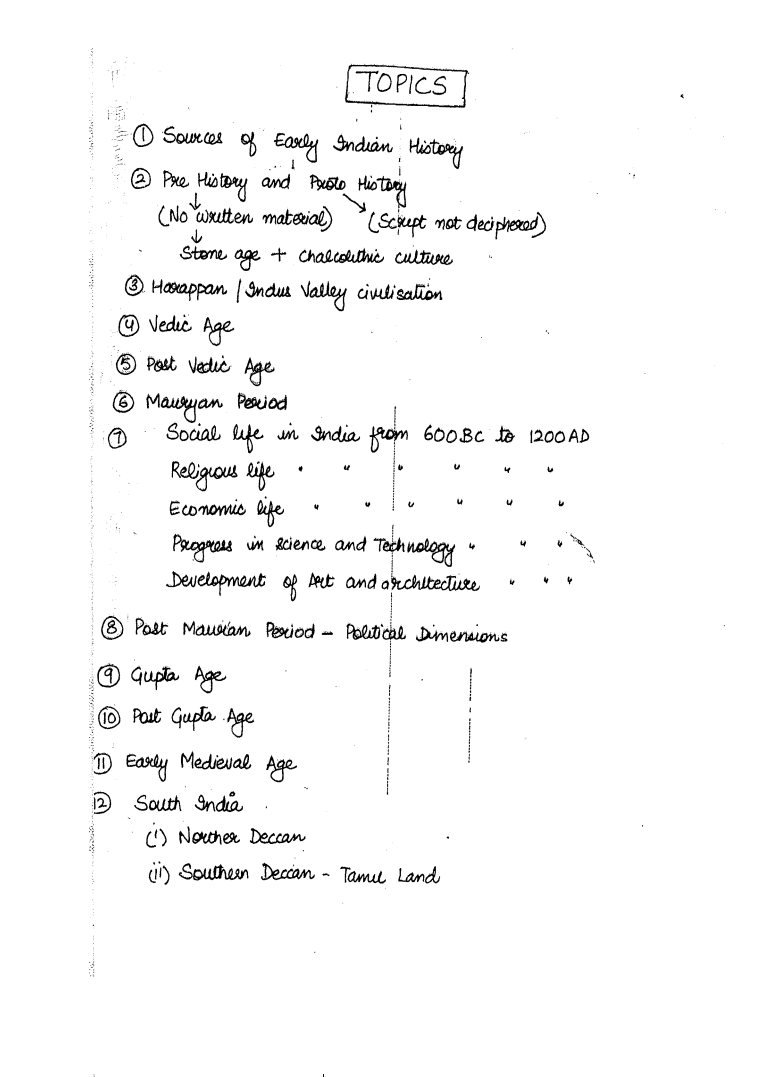 TOPICS
① Sources of Early Indian History
② Pre History and Proto History
(No written material) (Script not deciphered)
Stone age + chalcolithic culture
③ Harappan / Indus Valley civilisation
④ Vedic Age
⑤ Post Vedic Age
⑥ Mauryan Period
⑦ Social life in India from 600BC to 1200AD
Religious life " " " " " "
Economic life " " " " " "
Progress in science and Technology " " "
Development of Art and architecture " " "
⑧ Post Maurian Period - Political Dimensions
⑨ Gupta Age
⑩ Post Gupta Age
⑪ Early Medieval Age
⑫ South India
(i) Norther Deccan
(ii) Southern Deccan - Tamil Land